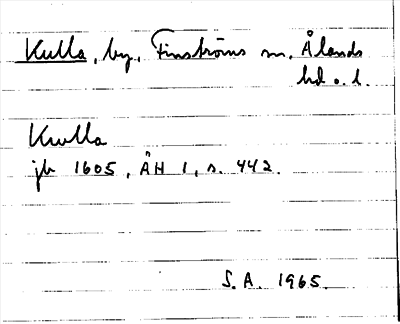 Kulla, by, Finströms sn, Ålands
hd o. l.
Kwlla
jb 1605, ÅH 1, s. 442.
S.A. 1965.